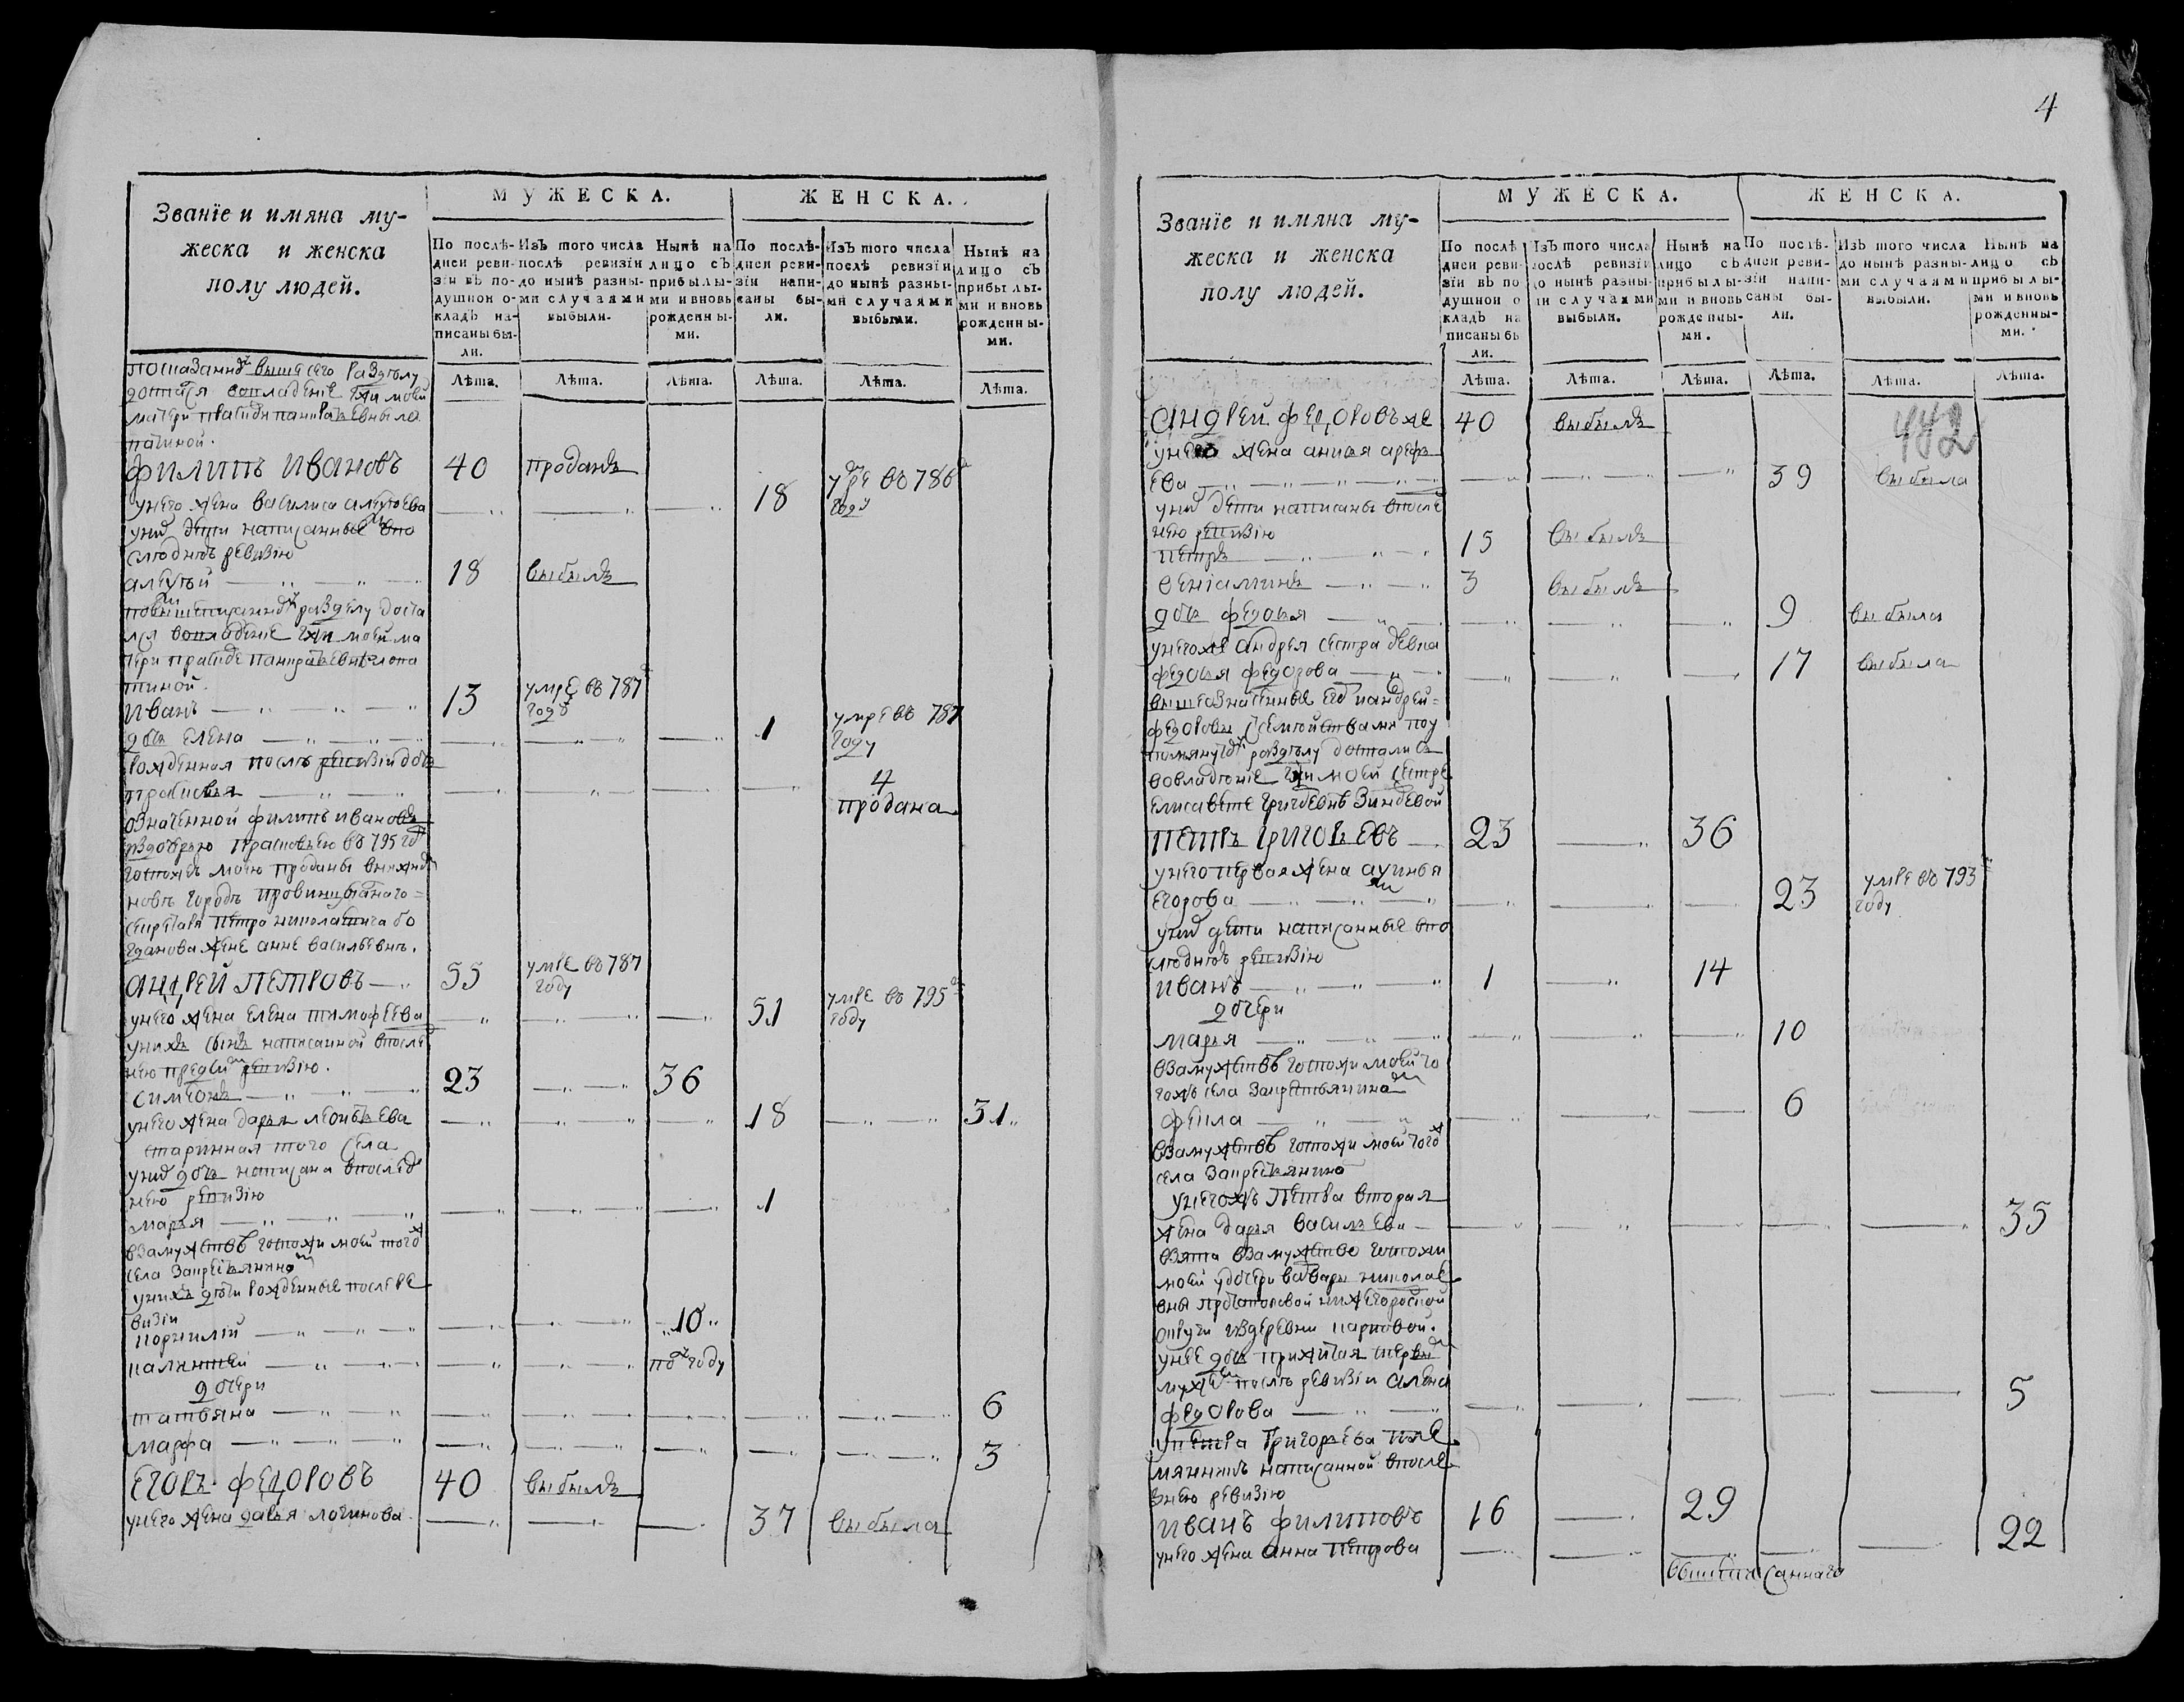 4
Званїе и имяна му-
жеска и женска
полу людей.
МУЖЕСКА.
ЖЕНСКА.
По послѣ-
дней реви-
зїи въ по-
душной о-
кладъ на-
писаны бы-
ли.
Изъ того числа
послѣ ревизїи
до нынѣ разны-
ми случаями
выбыли.
Нынѣ на
лицо съ
прибылы-
ми и вновь
рожденны-
ми.
По послѣ-
дней реви-
зїи напи-
саны бы-
ли.
Изъ того числа
послѣ ревизїи
до нынѣ разны-
ми случаями
выбыли.
Нынѣ на
лицо съ
прибылы-
ми и вновь
рожденны-
ми.
Лѣта. Лѣта. Лѣта. Лѣта. Лѣта. Лѣта.
выше сего разделу
моей
матери
филипъ ивановъ 40 проданъ
унего жена василиса алеѯеева 18 умре въ 786 году
уних дети написанные впо
следнюю ревизию
алеѯей 18 выбылъ
разделу доста
лся вовладение моей ма
тери
иванъ 13 умре въ 787 году
дочь елена 1 умре въ 787 году
рожденная после ревизии дочь
прасковья 4 продана
означенной филипъ ивановъ
здочерью прасковьею въ 795 году
госпожею моею проданы внижнемъ
новѣ городѣ провинциалнаго
секретаря петра николаевича бо
гданова жене анне васильевне.
андрей петровъ 55 умре въ 787 году
унего жена елена тимофеева 51 умре въ 795 году
унихъ сынъ написанной впослед
нею пред сим ревизию.
симеонъ 23 36
унего жена дарья леонтьева 18 31
старинная того села
уних дочь написана впослед
нею ревизию
марья 1
взамужствѣ госпожи моей тогож
села за крестьянином
унихъ дети рожденные после ре
визии
корнилий 10
калинтей по году
дочери
татьяна 6
марфа 3
егоръ федоровъ 40 выбылъ
унего жена дарья логинова 37 выбыла
Званїе и имяна му-
жеска и женска
полу людей.
МУЖЕСКА.
ЖЕНСКА.
По послѣ
дней реви-
зїи въ по
душной о
кладъ на
писаны бы
ли.
Изъ того числа
послѣ ревизїи
до нынѣ разны-
ми случаями
выбыли.
Нынѣ на
лицо съ
прибылы-
ми и вновь
рожденны-
ми.
По послѣ-
дней реви-
зїи напи-
саны бы-
ли.
Изъ того числа
до нынѣ разны-
ми случаями
выбыли.
Нынѣ на
лицо съ
прибылы-
ми и вновь
рожденны-
ми.
Лѣта. Лѣта. Лѣта. Лѣта. Лѣта. Лѣта.
андрей федоровъ же 40 выбылъ
442
унего жена арефь
ева 39 выбыла
уних дети написаны впослед
нею ревизию
петръ 15 выбылъ
вениаминъ 3 выбылъ
дочь федосья 9 выбыла
унегоже андрея сестра девка
федосья федорова 17 выбыла
вышеозначенные егоръ иандрей
федоровы ссемействами по
помянутому разделу достались
вовладение моей сестре
елисавете григорьевне зиновьевой
петръ григорьевъ 23 36
унего первая жена аѯинья
егорова 23 умре въ 793 году
уних дети написанные впо
следнюю ревизию
иванъ 1 14
дочери
марья 10
взамужствѣ госпожи моей то
гожъ села за крестьянином
фекла 6
взамужствѣ госпожи моей тогож
села за крестьянином
унегожъ петра вторая
жена дарья васильева 35
взята взамужство госпожи
моей удочери варвары николае
вны нижегородской
округи издеревни
унее дочь прижитая спервым
мужем после ревизии алена
федорова 5
упетра григорьева пле
мянникъ написанной впосле
днею ревизию
иванъ филиповъ 16 29
унего жена анна петрова 22